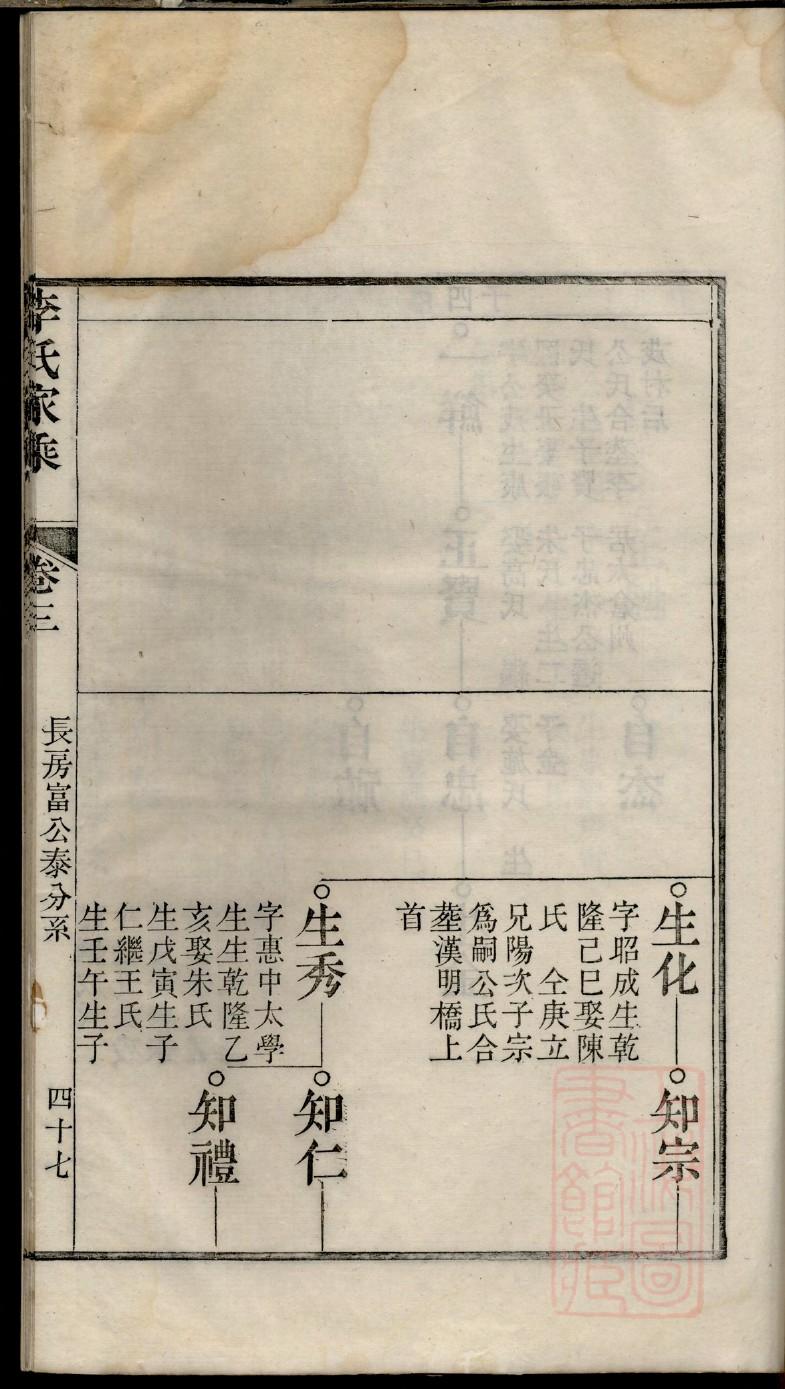 生化
字昭成生乾
隆己巳娶陳
氏　仝庚立
兄陽次子宗
爲嗣公氏合
塟漢明橋上
首
知宗
生秀
字惠中太學
生生乾隆乙
亥娶朱氏
生戊寅生子
仁繼王氏
生壬午生子
知仁
知禮
李氏家乘
卷三
長房富公泰分系
四十七